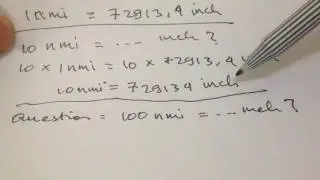 1 nmi = 72913,4 inch
10 nmi = ... inch?
10 x 1 nmi = 10 x 72913,4
10 nmi = 729134 inch
Question = 100 nmi = ... inch?